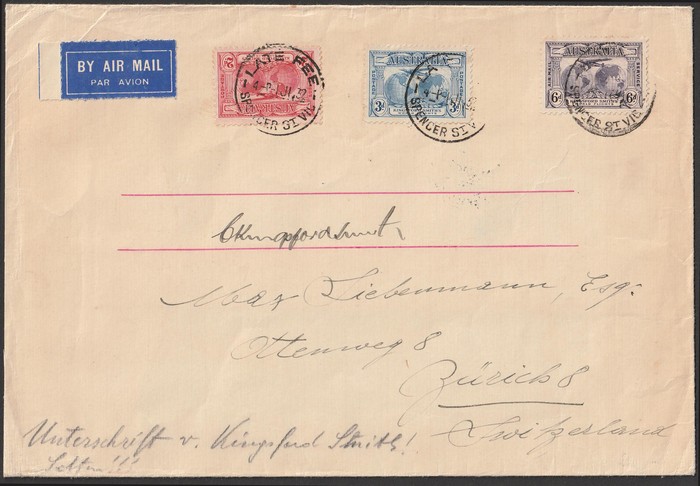 BY AIR MAIL
PAR AVION
LATE FEE
SPENCER ST VIC
AUSTRALIA
3d 3d
SPENCER ST VIC
AUSTRALIA
6d 6d
SPENCER ST VIC
CKingsfordSmith
Max Liebenmann, Esq.
Ottenweg 8
Zürich 8
Switzerland
Unterschrift v. Kingsford Smith!
Selten!!!